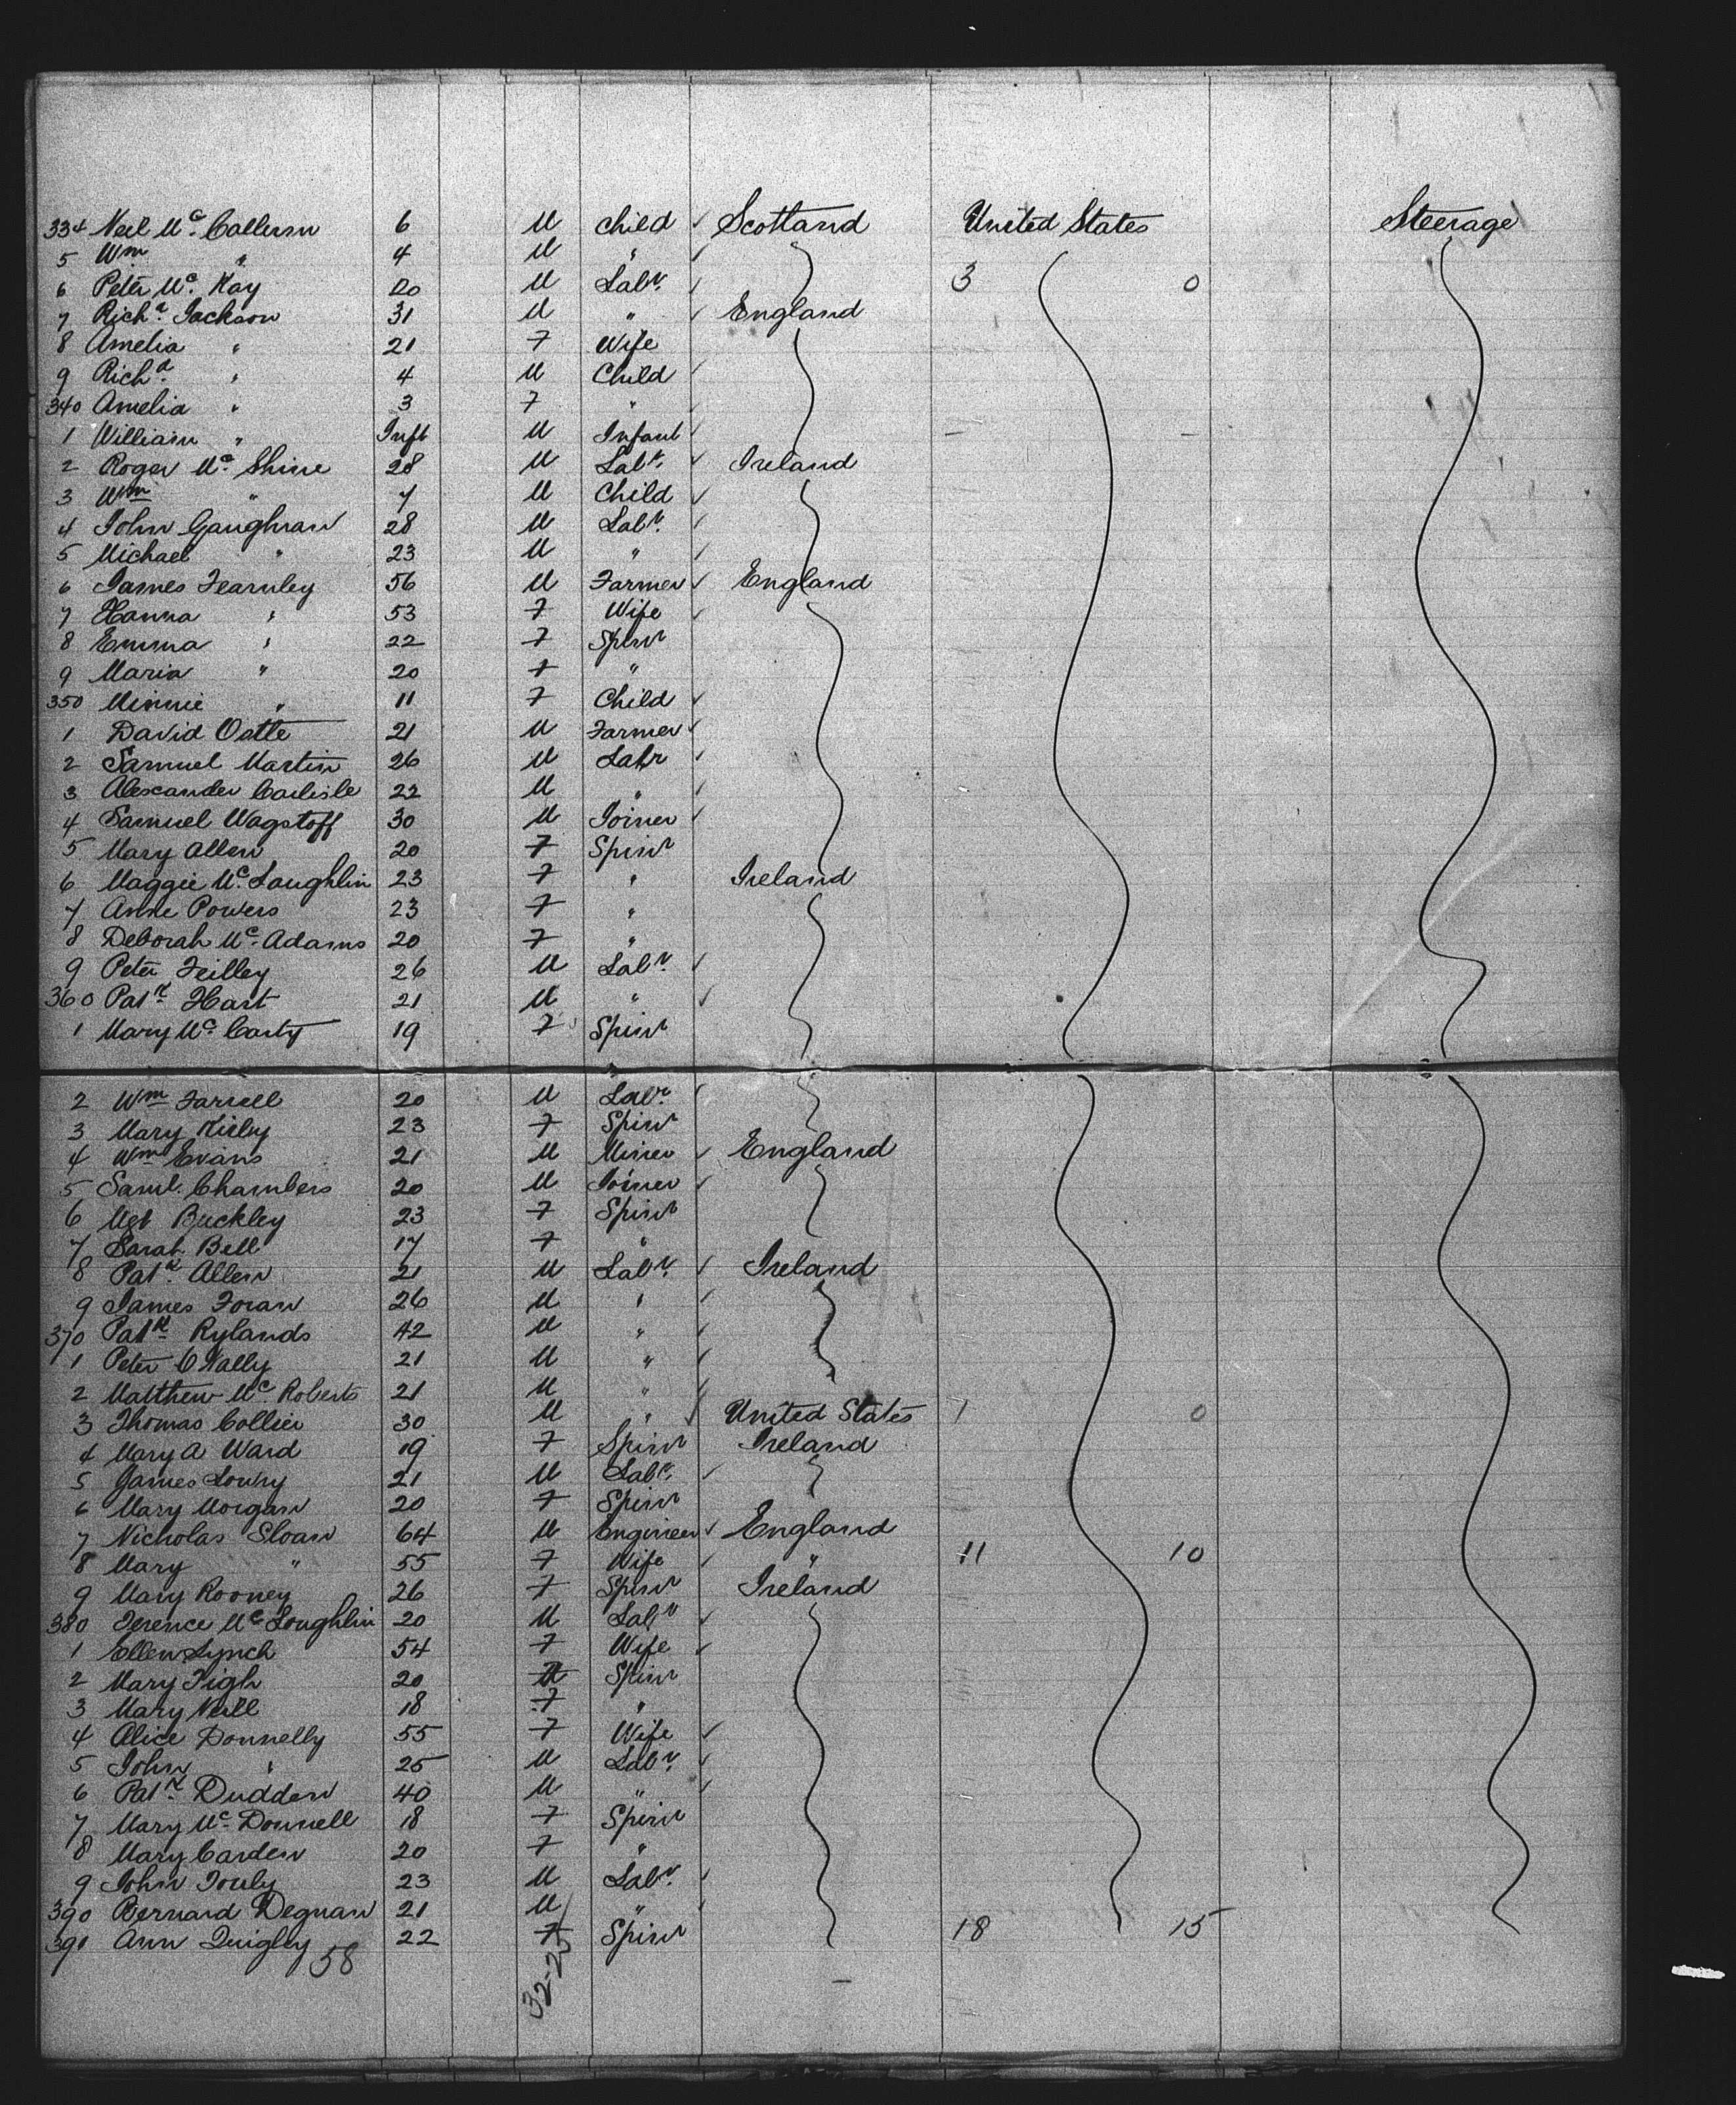 334 Neil Mc. Collum 6 M Child ✓ Scotland United States Steerage
5 Wm " 4 M " ✓
6 Peter Mc. Kay 20 M Labr. ✓ 3 0
7 Richd. Jackson 31 M " ✓ England
8 Amelia " 21 F Wife
9 Richd. " 4 M Child ✓
340 Amelia " 3 F " ✓
1 William " Inft M Infant ✓ – –
2 Roger Mc. Shine 28 M Labr. ✓ Ireland
3 Wm " 7 M Child ✓
4 John Gaughran 28 M Labr. ✓
5 Michael " 23 M " ✓
6 James Fearnley 56 M Farmer ✓ England
7 Hanna " 53 F Wife ✓
8 Emma " 22 F Spinr
9 Maria " 20 F "
350 Minnie " 11 F Child ✓
1 David Ostle 21 M Farmer ✓
2 Samuel Martin 26 M Labr ✓
3 Alexander Carlisle 22 M " ✓
4 Samuel Wagstoff 30 M Joiner ✓
5 Mary Allen 20 F Spinr
6 Maggie Mc. Laughlin 23 F " Ireland
7 Anne Powers 23 F "
8 Deborah Mc. Adams 20 F "
9 Peter Feilley 26 M Labr. ✓
360 Patk. Hart 21 M " ✓
1 Mary Mc. Carty 19 F Spinr
2 Wm Farrell 20 M Labr. ✓
3 Mary Kirby 23 F Spinr
4 Wm Evans 21 M Miner ✓ England
5 Saml. Chambers 20 M Joiner ✓
6 Mgt Buckley 23 F Spinr
7 Sarah Bell 17 F "
8 Patk. Allen 21 M Labr. ✓ Ireland
9 James Foran 26 M " ✓
370 Patk. Rylands 42 M " ✓
1 Peter O Nally 21 M " ✓
2 Matthew Mc. Roberts 21 M " ✓
3 Thomas Collier 30 M " ✓ United States 1 0
4 Mary A Ward 19 F Spinr Ireland
5 James Lowry 21 M Labr. ✓
6 Mary Morgan 20 F Spinr
7 Nicholas Sloan 64 M Engineer ✓ England
8 Mary " 55 F Wife ✓ " 11 10
9 Mary Rooney 26 F Spinr Ireland
380 Terence Mc. Loughlin 20 M Labr ✓
1 Ellen Lynch 54 F Wife ✓
2 Mary Tigh 20 F Spinr
3 Mary Neill 18 F "
4 Alice Donnelly 55 F Wife ✓
5 John " 25 M Labr. ✓
6 Patk. Dudden 40 M " ✓
7 Mary Mc. Donnell 18 F Spinr
8 Mary Carden 20 F "
9 John Touly 23 M Labr. ✓
390 Bernard Degnan 21 M " ✓
391 Ann Quigley 22 F Spinr 18 15
58
32-25